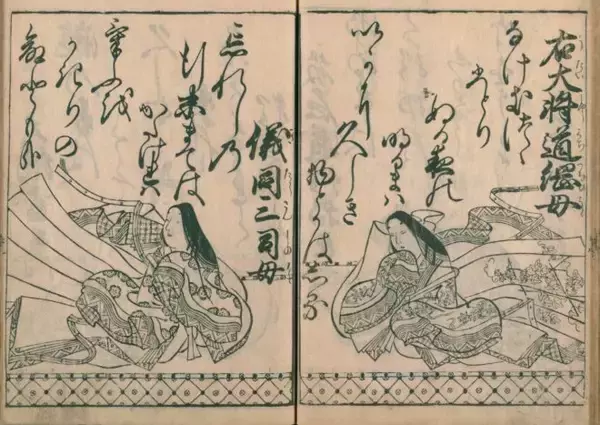 右大将道綱母
なけきつゝ
ひとり
ぬる夜の
明るまは
いかに久しき
物とかはしる
儀同三司母
忘れしの
行末まては
かたけれは
けふを
かきりの
命ともかな